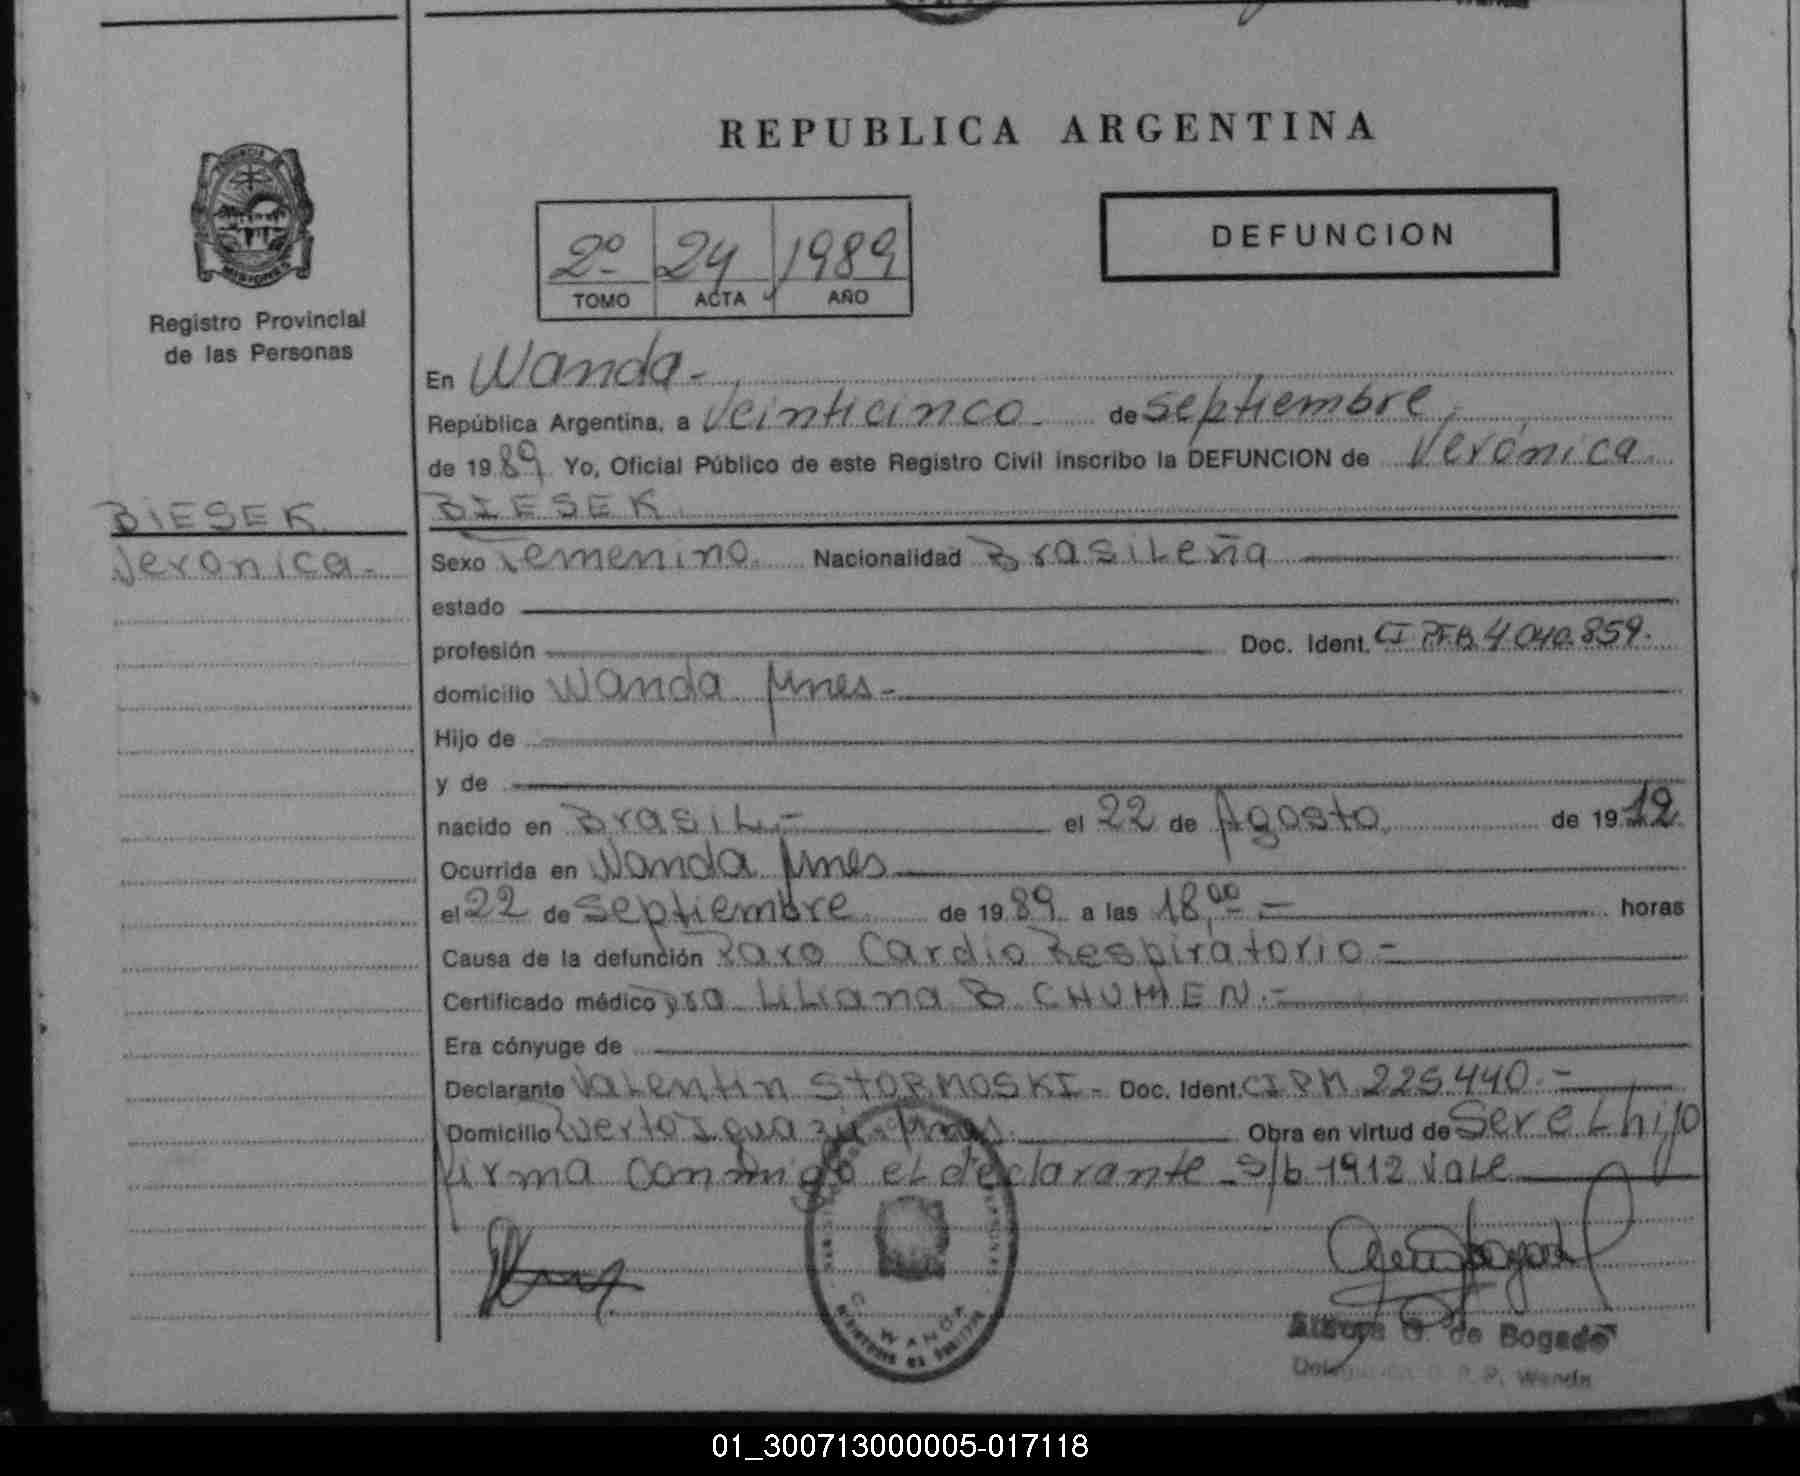 REPUBLICA ARGENTINA
MISIONES
Registro Provincial
de las Personas
2º 24 1989
TOMO ACTA AÑO
DEFUNCION
En Wanda-
República Argentina, a veinticinco de septiembre
de 1989 Yo, Oficial Público de este Registro Civil inscribo la DEFUNCION de Verónica
BIESEK
BIESEK
Veronica-
Sexo Femenino Nacionalidad Brasileña
estado
profesión Doc. Ident. CI PFB 4040.859.
domicilio Wanda Mnes-
Hijo de
y de
nacido en Brasil.- el 22 de Agosto de 1912
Ocurrida en Wanda Mnes
el 22 de septiembre de 1989 a las 18,00 horas
Causa de la defunción Paro Cardio Respiratorio-
Certificado médico Dra Liliana B CHUMEN.-
Era cónyuge de
Declarante Valentin STORMOSKI- Doc. Ident. CIPM 225.440.-
Domicilio Puerto Iguazú Mnes. Obra en virtud de ser el hijo
firma conmigo el declarante - s/b 1912 Vale
WANDA
G. de Bogado
R. P. Wanda
01_300713000005-017118